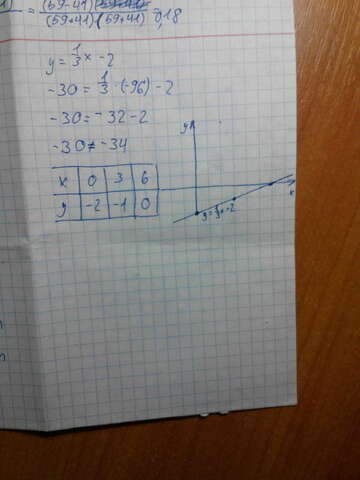 = (59-41)(59+41) / (59+41)(59+41) 0,18
y = 1/3 x - 2
-30 = 1/3 · (-96) - 2
-30 = -32 - 2
-30 ≠ -34
x 0 3 6
y -2 -1 0
y
x
y = 1/3x - 2